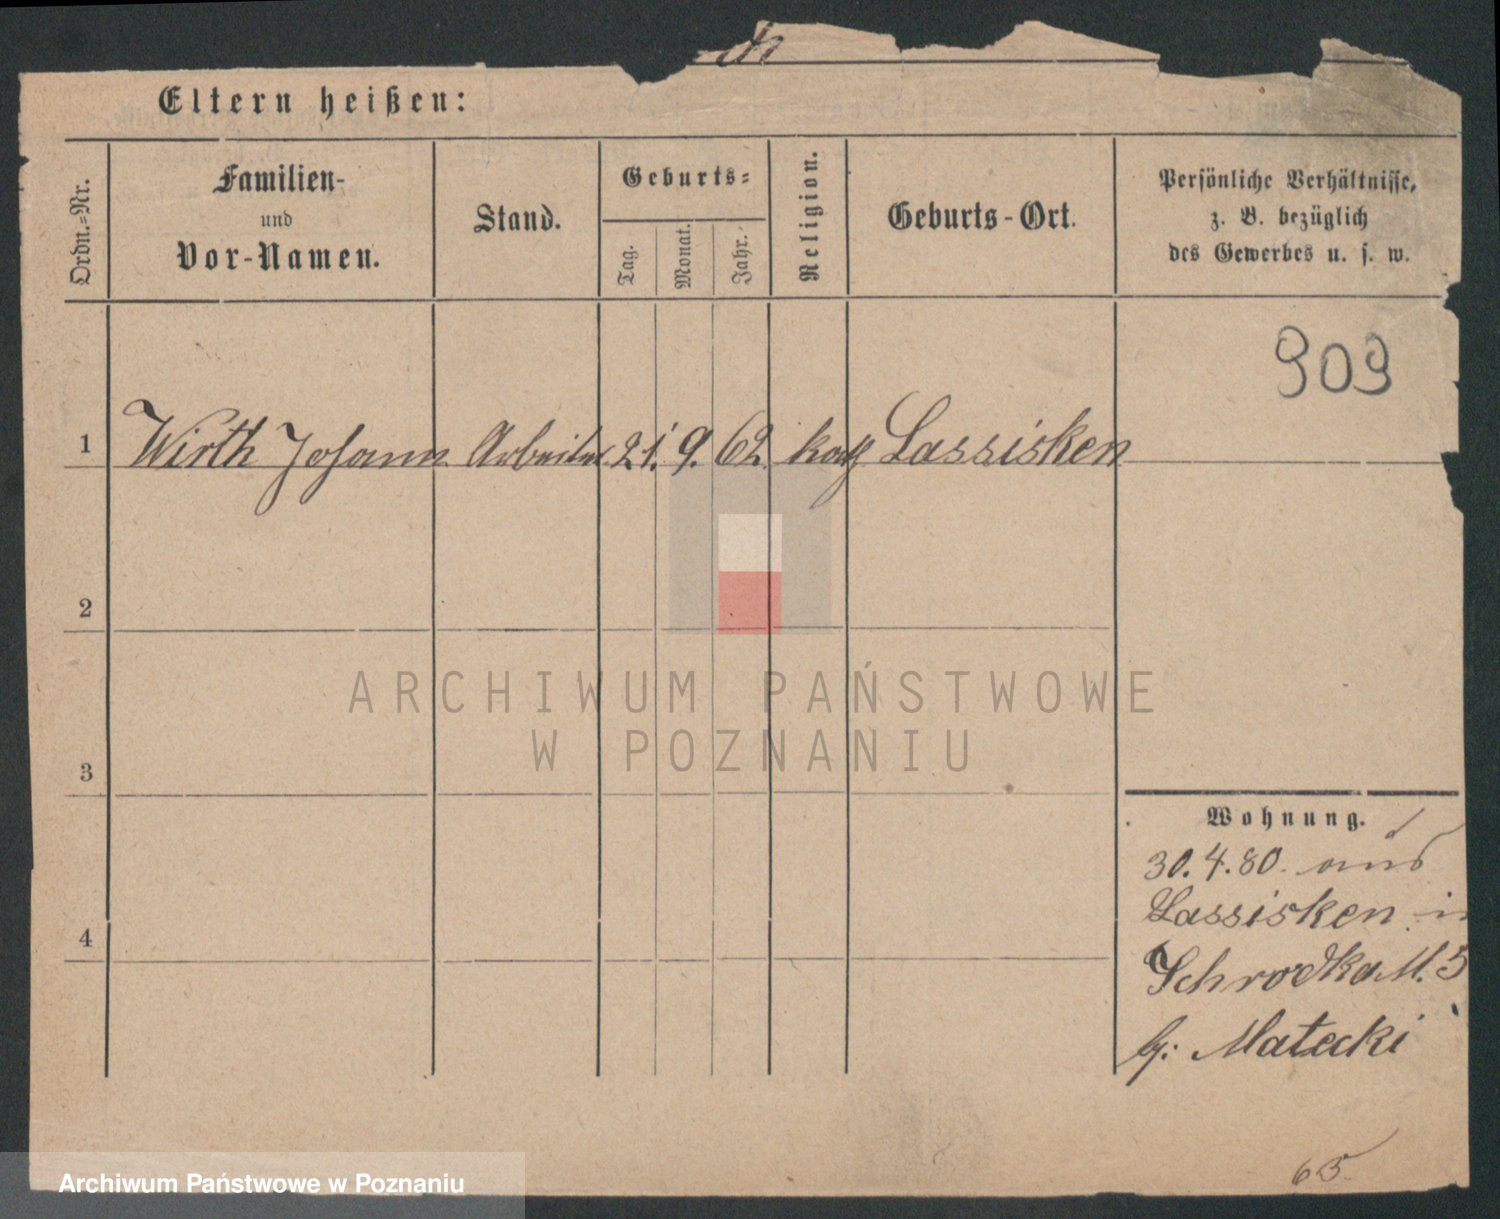 Eltern heißen:
Ordn.-Nr.
Familien-
und
Vor-Namen.
Stand.
Geburts-
Tag.
Monat.
Jahr.
Religion.
Geburts-Ort.
Persönliche Verhältnisse,
z. B. bezüglich
des Gewerbes u. s. w.
909
1 Wirth Johann Arbeiter 21. 9. 62. kath Lassisken
2
3
4
ARCHIWUM PAŃSTWOWE
W POZNANIU
Wohnung.
30. 4. 80. aus
Lassisken in
Schrodka 5
b: Matecki
65
Archiwum Państwowe w Poznaniu